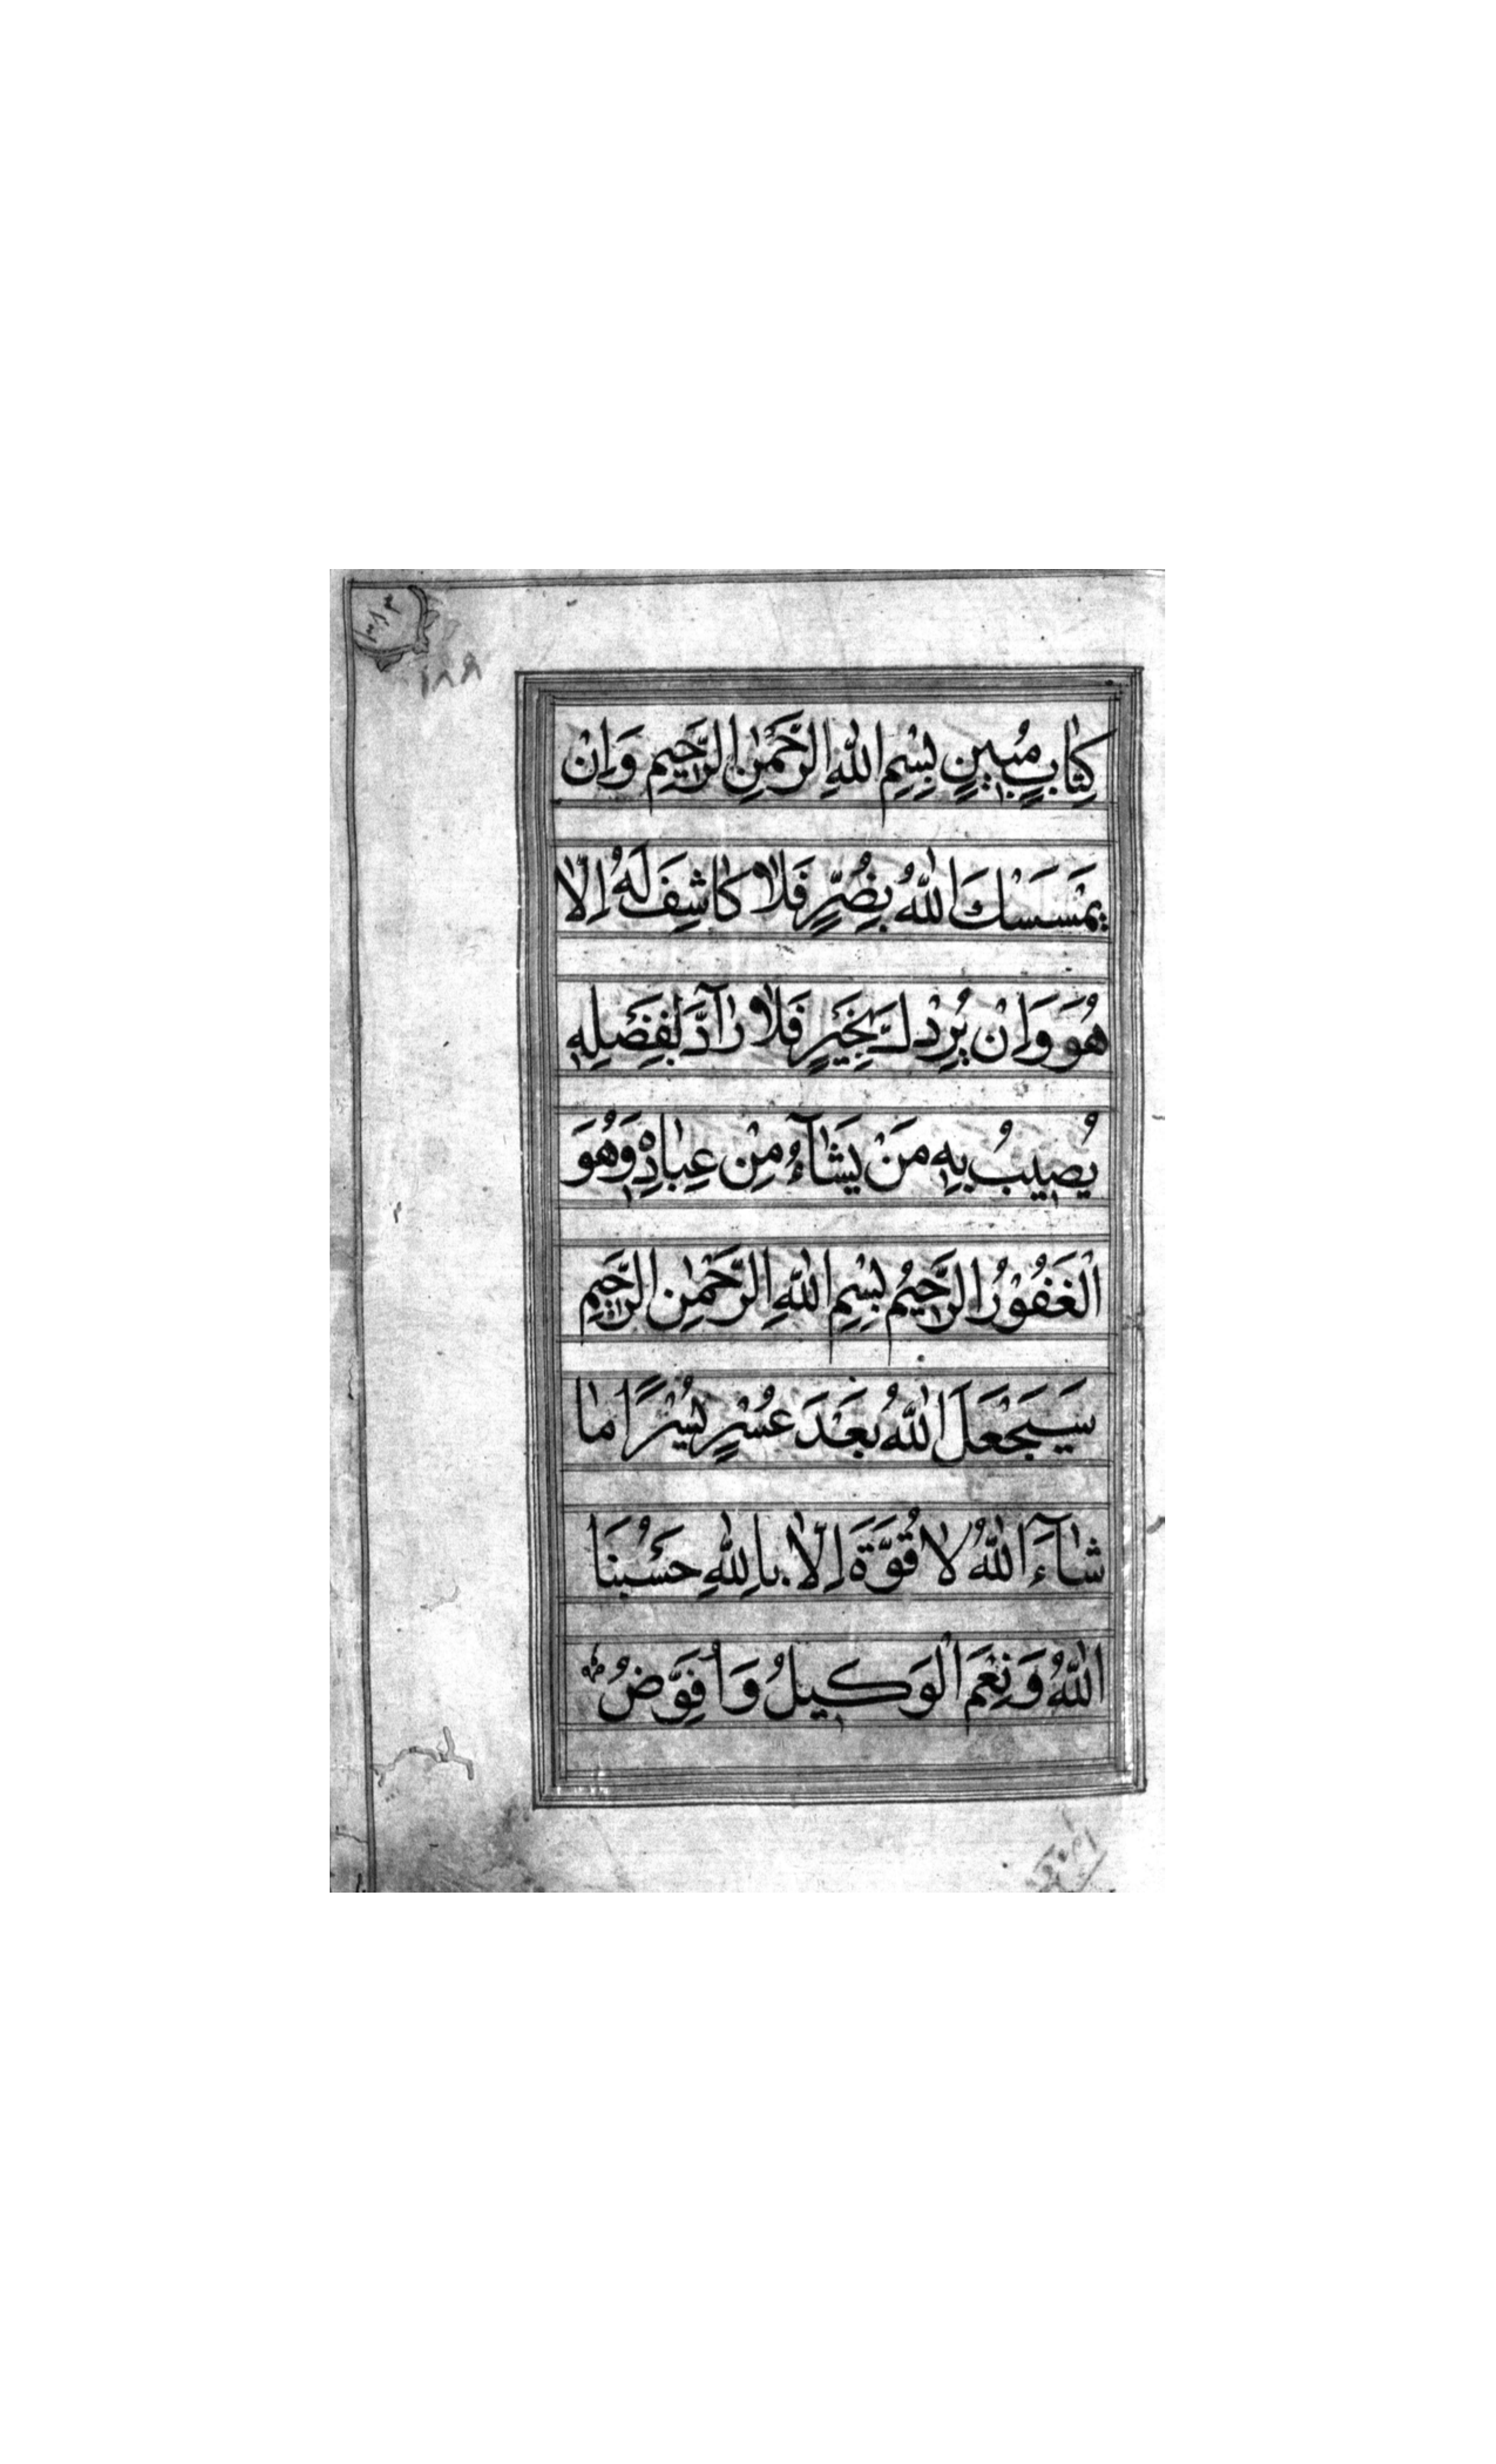 ١٨٨
كِتَابٍ مُبِينٍ بِسْمِ اللّٰهِ الرَّحْمٰنِ الرَّحِيمِ وَاِنْ
يَمْسَسْكَ اللّٰهُ بِضُرٍّ فَلَا كَاشِفَ لَهُ اِلَّا
هُوَ وَاِنْ يُرِدْكَ بِخَيْرٍ فَلَا رَآدَّ لِفَضْلِهِ
يُصِيبُ بِهِ مَنْ يَشَآءُ مِنْ عِبَادِهِ وَهُوَ
الْغَفُوْرُ الرَّحِيمُ بِسْمِ اللّٰهِ الرَّحْمٰنِ الرَّحِيمِ
سَيَجْعَلُ اللّٰهُ بَعْدَ عُسْرٍ يُسْرًا مَا
شَآءَ اللّٰهُ لَا قُوَّةَ اِلَّا بِاللّٰهِ حَسْبُنَا
اللّٰهُ وَنِعْمَ الْوَكِيلُ وَاُفَوِّضُ